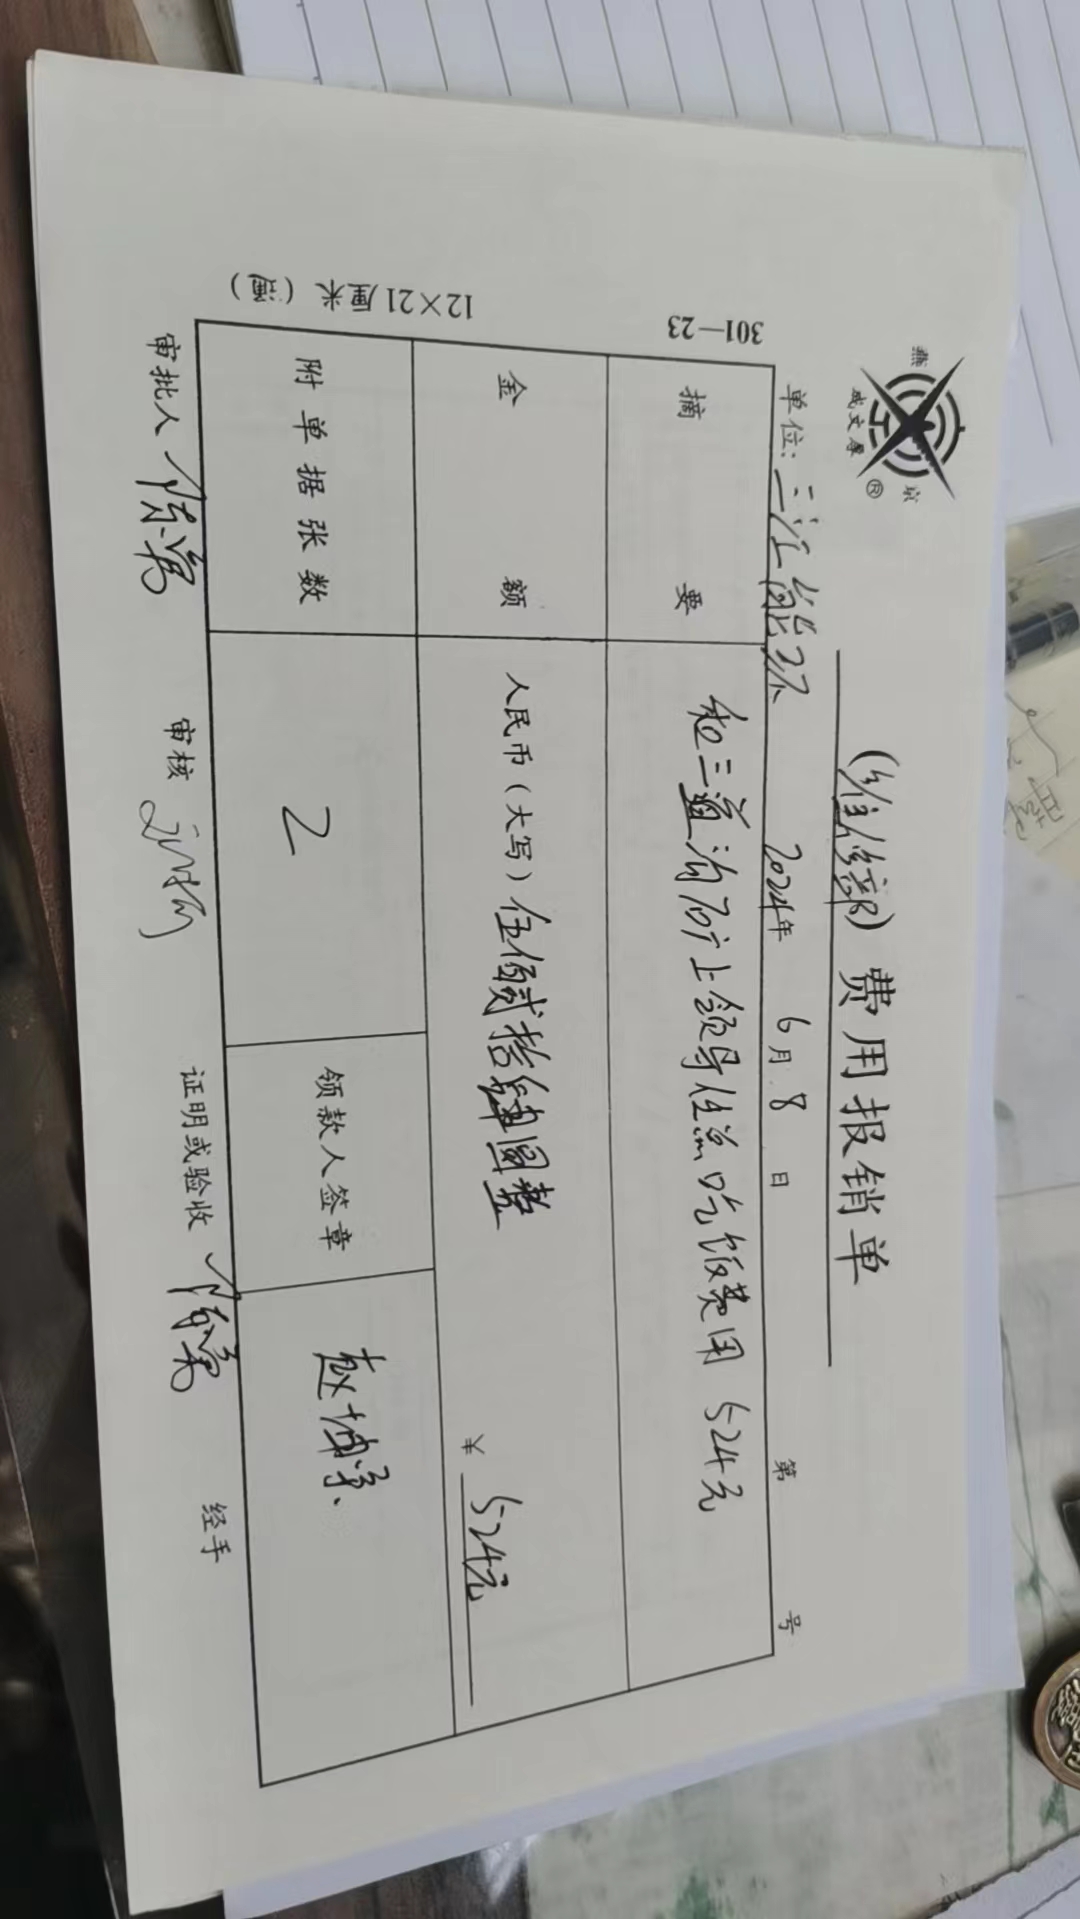 (维修部)费用报销单
燕京
成文厚®
单位:三江能环 2024年 6月 8日 第 号
301—23
摘要 和三道沟矿上领导任总吃饭费用 524元
金额 人民币(大写)伍佰贰拾肆圆整 ¥ 524元
附单据张数 2 领款人签章 赵博学
审批人 审核 证明或验收 经手
12×21厘米(通)